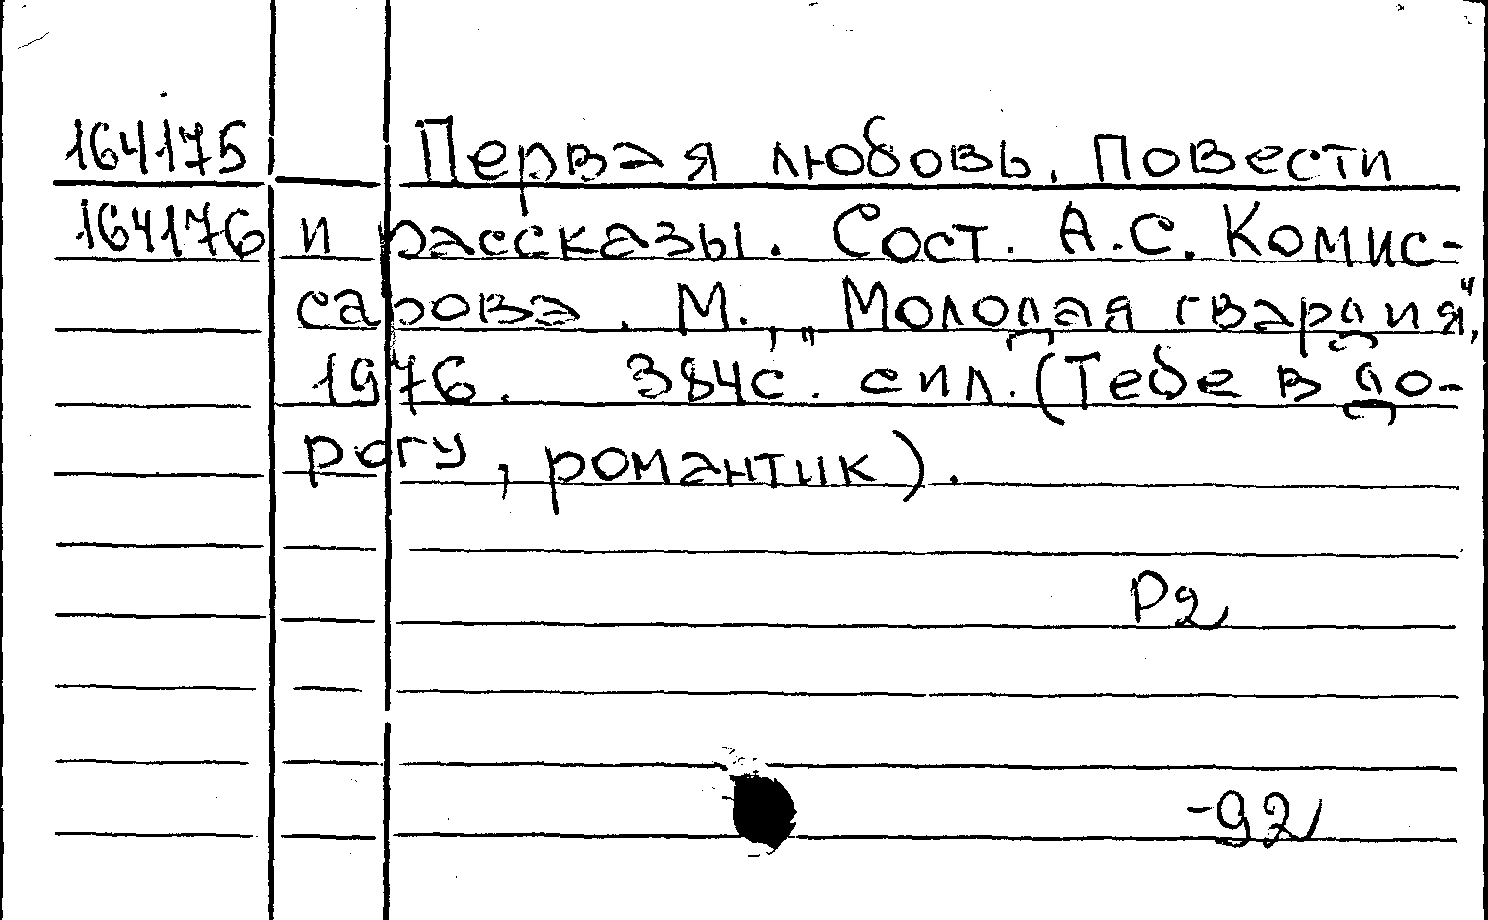 164175 Первая любовь. Повести
164176 и рассказы. Сост. А.С. Комис-
сарова. М., „Молодая гвардия",
1976. 384с. с ил. (Тебе в до-
рогу, романтик).
Р2
-92